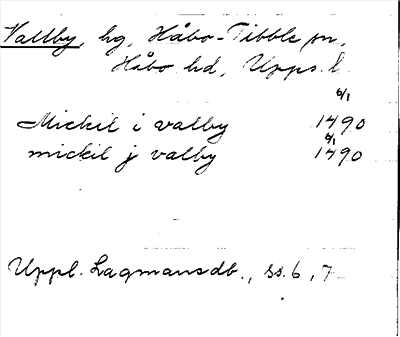 Vallby, hg, Håbo-Tibble sn,
Håbo hd, Upps. l.
Mickil i valby 6/1 1490
mickil j valby 6/1 1490
Uppl. Lagmansdb., ss. 6, 7